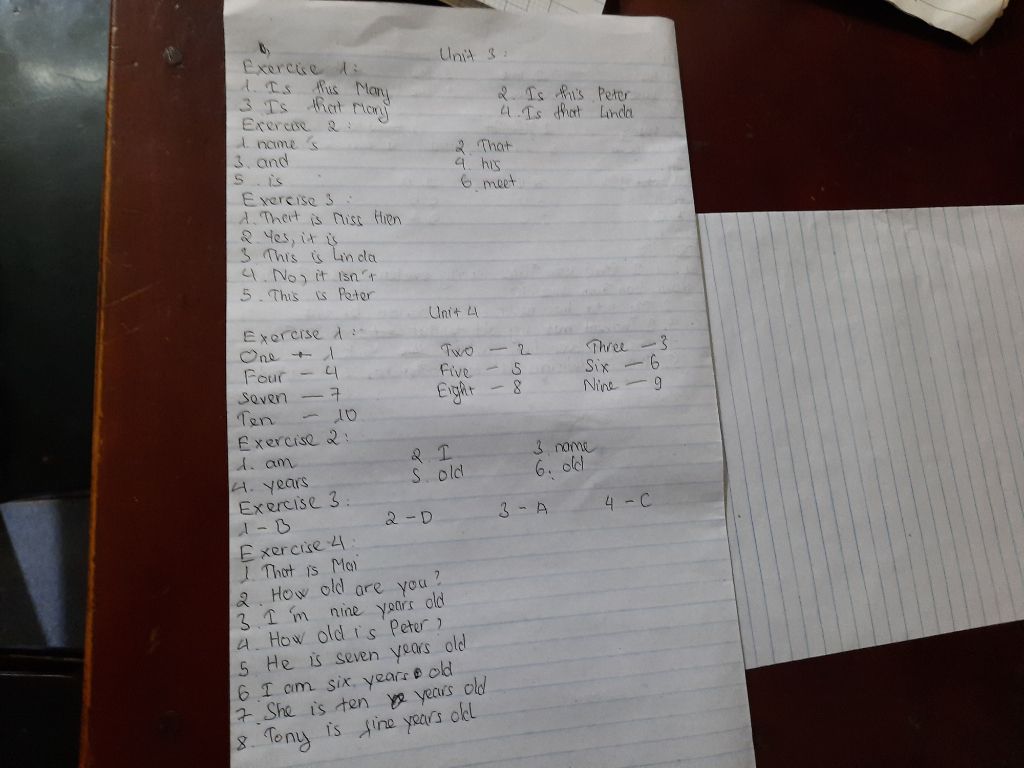 b, Unit 3:
Exercise 1:
1. Is this Mary 2. Is this Peter
3. Is that Mary 4. Is that Linda
Exercise 2:
1. name's 2. That
3. and 4. his
5. is 6. meet
Exercise 3:
1. Thert is Miss Hien
2. Yes, it is
3. This is Linda
4. No, it isn't
5. This is Peter
Unit 4
Exercise 1:
One - 1 Two - 2 Three - 3
Four - 4 Five - 5 Six - 6
Seven - 7 Eight - 8 Nine - 9
Ten - 10
Exercise 2:
1. am 2. I 3. name
4. years 5. old 6. old
Exercise 3:
1 - B 2 - D 3 - A 4 - C
Exercise 4:
1. That is Mai
2. How old are you?
3. I'm nine years old
4. How old is Peter?
5. He is seven years old
6. I am six years old
7. She is ten years old
8. Tony is fine years old